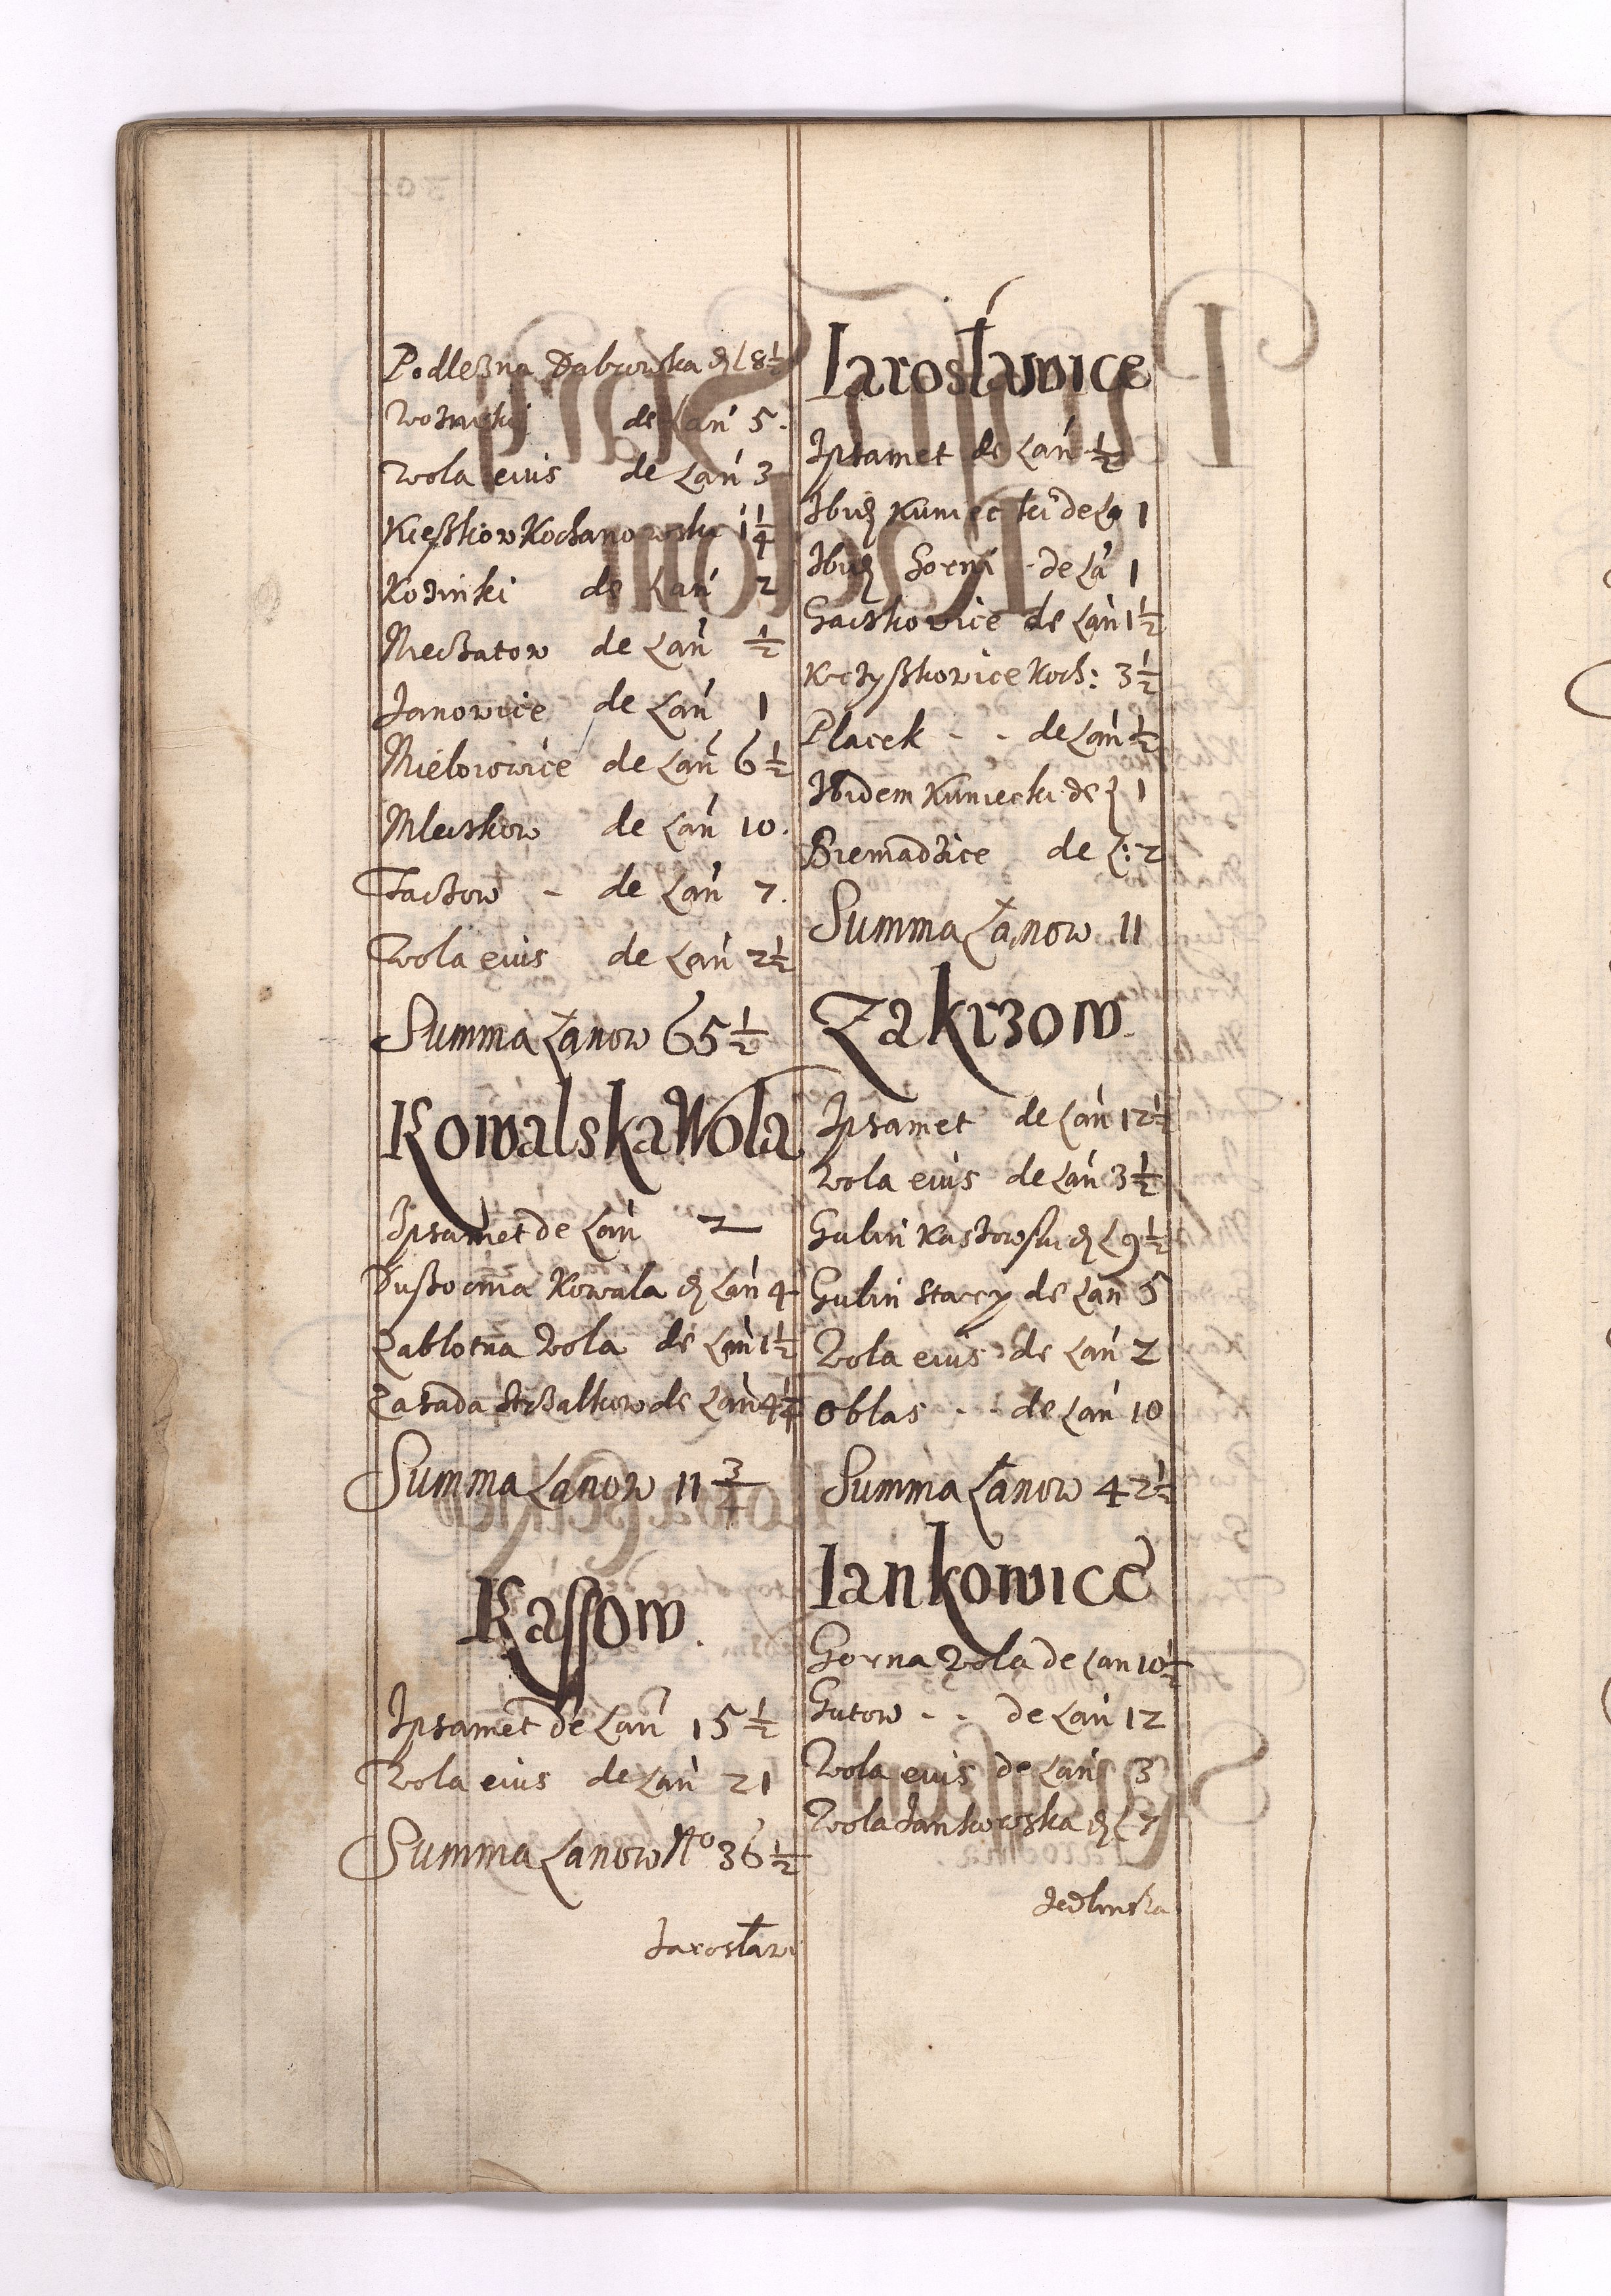 Podleszna Dabrowska de L 8½
de Lań 5.
Wola eius de Lań 3
Kieszkow Kochanowska 1¼
Kozinki de Łań 2
Mechatow de Lań ½
Janowice de Lań 1
Mieborowice de Lań 6½
Mleczkow de Lań 10.
Tachow - de Lań 7.
Wola eius de Lań 2½
Summa Łanow 65½
Kowalska Wola
Ipsamet de Łań 2
Dußocina Kowala de Lań 4
Zablotna Wola de Lań 1½
Zatada Strzalkow de Lań 4¼
Summa Łanow 11¾
Kassow.
Ipsamet de Lań 15½
Wola eius de Lań 21
Summa Lanow No 36½
Jarosławi
Iarosławice
Ipsamet de Lań ½
Ibide Kuniecki de La 1
Ibide Gorni - de Lá 1
Gaczkowice de Lań 1½
Krczyszkowice Koch: 3½
Placek - - de Lań ½
Ibidem Kuniecki de Ł 1
Siemadzice de Ł: 2
Summa Łanow 11
Zakrzow.
Ipsamet de Lań 12½
Wola eius de Lań 3½
Gulin Kaszowski de L 9½
Gulin Stary de Lań 5
Wola eius de Lań 2
Oblas - - de Lań 10
Summa Łanow 42½
Iankowice
Gorna Wola de Lan 10½
Gutow - - de Lań 12
Wola eius de Lań 3
Wola Jankowska de L 7
Jedlinska